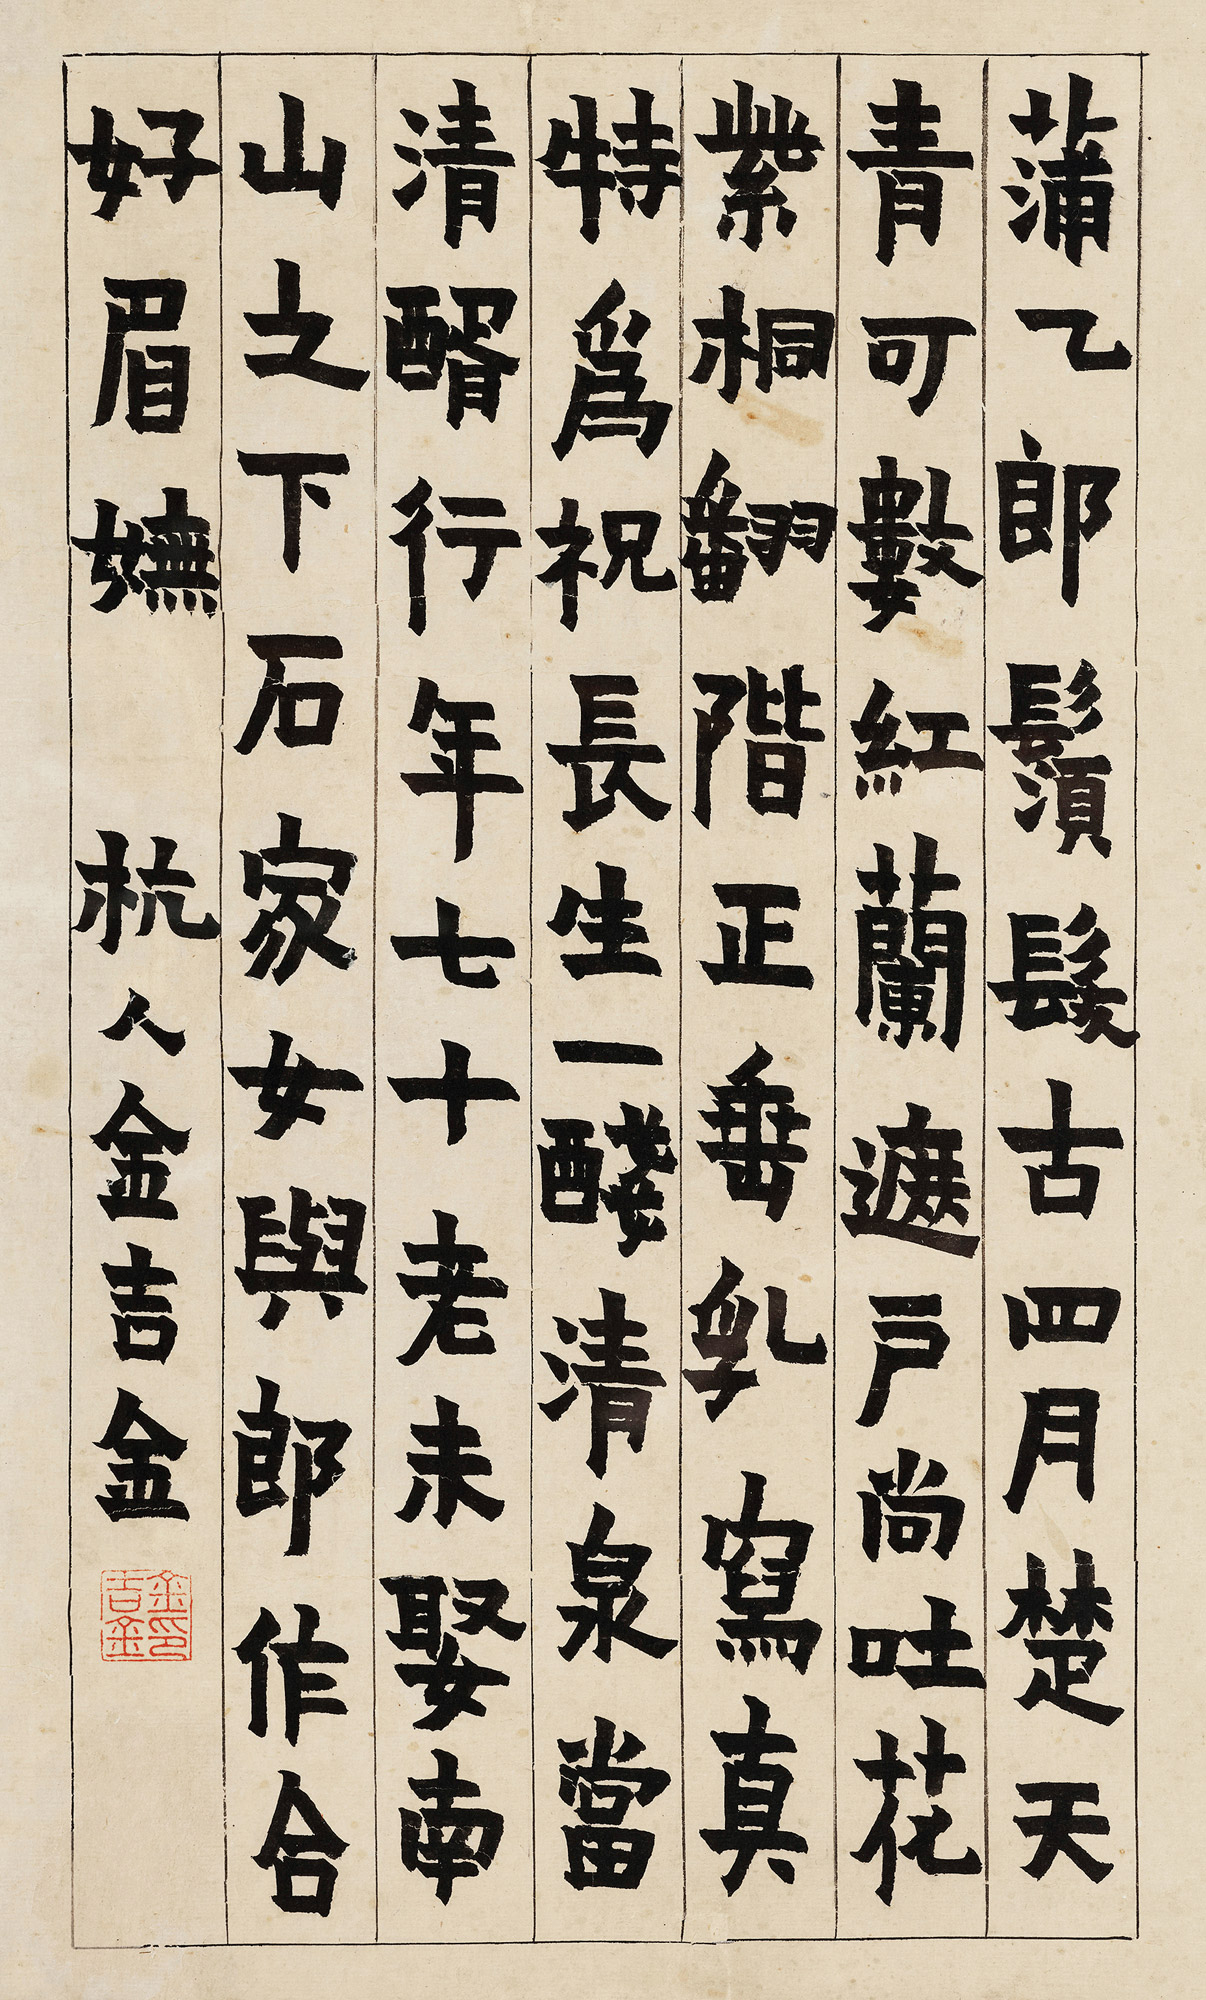 蒲乙郎鬚髮古四月楚天
青可數紅蘭遮戶尚吐花
紫桐翻階正垂乳寫真
特爲祝長生一醆清泉當
清醑行年七十老未娶南
山之下石家女與郎作合
好眉嫵 杭人金吉金
金吉金印